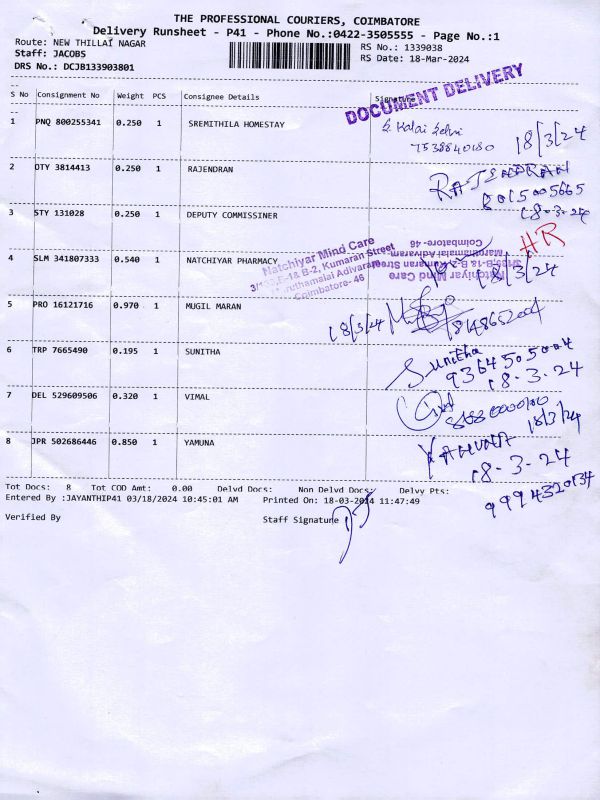 THE PROFESSIONAL COURIERS, COIMBATORE
Delivery Runsheet - P41 - Phone No.:0422-3505555 - Page No.:1
Route: NEW THILLAI NAGAR
RS No.: 1339038
Staff: JACOBS
RS Date: 18-Mar-2024
DRS No.: DCJB133903801
DOCUMENT DELIVERY
S No Consignment No Weight PCS Consignee Details Signature
1 PNQ 800255341 0.250 1 SREMITHILA HOMESTAY
18/3/24
2 OTY 3814413 0.250 1 RAJENDRAN
RAJENDRAN
8015005665
18-3-24
3 STY 131028 0.250 1 DEPUTY COMMISSINER
HR
4 SLM 341807333 0.540 1 NATCHIYAR PHARMACY
Natchiyar Mind Care
B-2, Kumaran Street
Maruthamalai Adivaram
Coimbatore- 46
Natchiyar Mind Care
Maruthamalai Adivaram
Coimbatore- 46
18/3/24
5 PRO 16121716 0.970 1 MUGIL MARAN
18/3/24
6 TRP 7665490 0.195 1 SUNITHA
Sunitha
9364505004
18-3-24
7 DEL 529609506 0.320 1 VIMAL
18/3/24
8 JPR 502686446 0.850 1 YAMUNA
YAMUNA
18-3-24
9994320134
Tot Docs: 8 Tot COD Amt: 0.00 Delvd Docs: Non Delvd Docs: Delvy Pts:
Entered By :JAYANTHIP41 03/18/2024 10:45:01 AM Printed On: 18-03-2024 11:47:49
Verified By Staff Signature